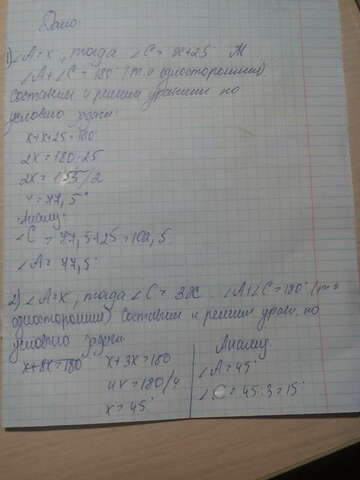 Дано:
1) ∠A=x, тогда ∠C= x+25
∠A+∠C=180 (т.к односторонние)
Составим и решим уравнение по
условию задачи:
x+x+25=180
2x=180-25
2x=155/2
x=77,5°
Анализ:
∠C = 77,5+25=102,5
∠A= 77,5°
2) ∠A=x, тогда ∠C= 3x ∠A+∠C=180° (т.к
односторонние) Составим и решим уравн. по
условию задачи.
x+3x=180 x+3x=180 Анализ:
4x=180/4 ∠A=45°
x=45° ∠C=45:3=15°